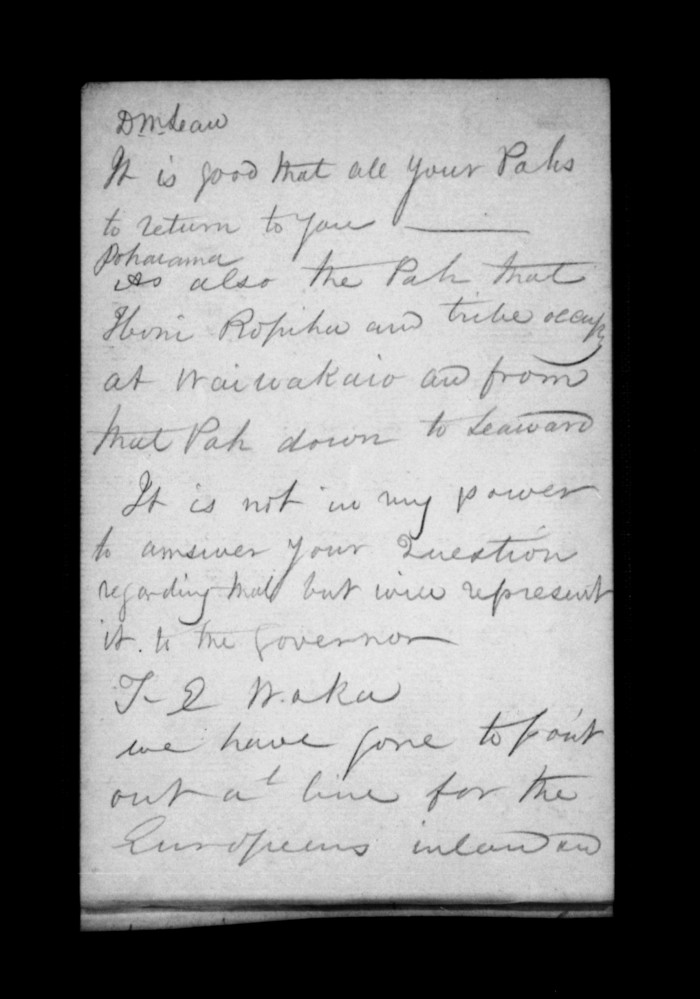 D McLean
It is good that all your Pahs
to return to you ———
Poharama
As also the Pah that
Honi Ropiha and tribe occupy
at Waiwakaio and from
that Pah down to Seaward
It is not in my power
to amsiver your Question
regarding that but will represent
it. to the Governor
T- E Waka
we have gone to point
out a line for the
Europeans inland and